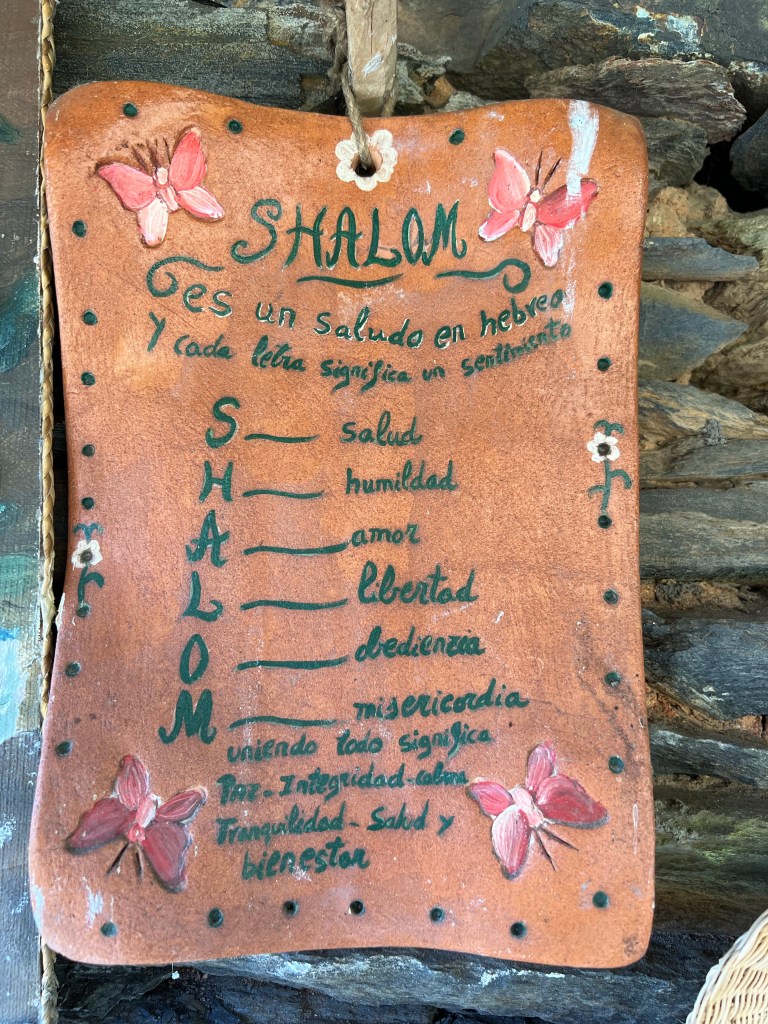 SHALOM
es un saludo en hebreo
y cada letra significa un sentimiento
S salud
H humildad
A amor
L libertad
O obedienzia
M misericordia
uniendo todo significa
Paz - Integridad - calma
Tranquilidad - Salud y
bienestar